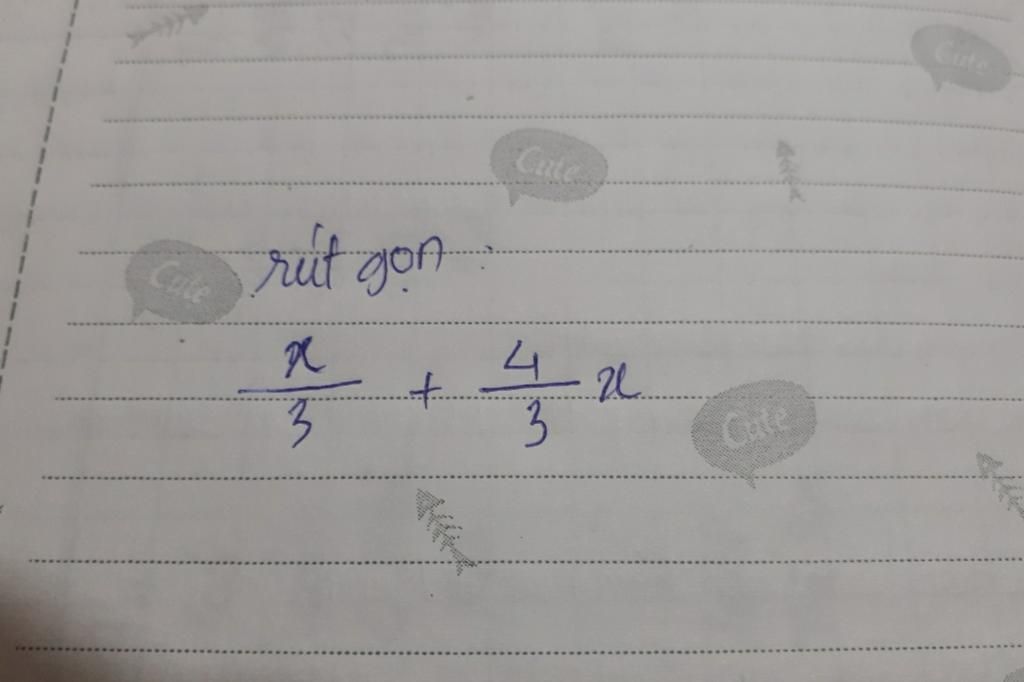 Cute
Cute
Cute
rút gọn :
x/3 + 4/3 x
Cute